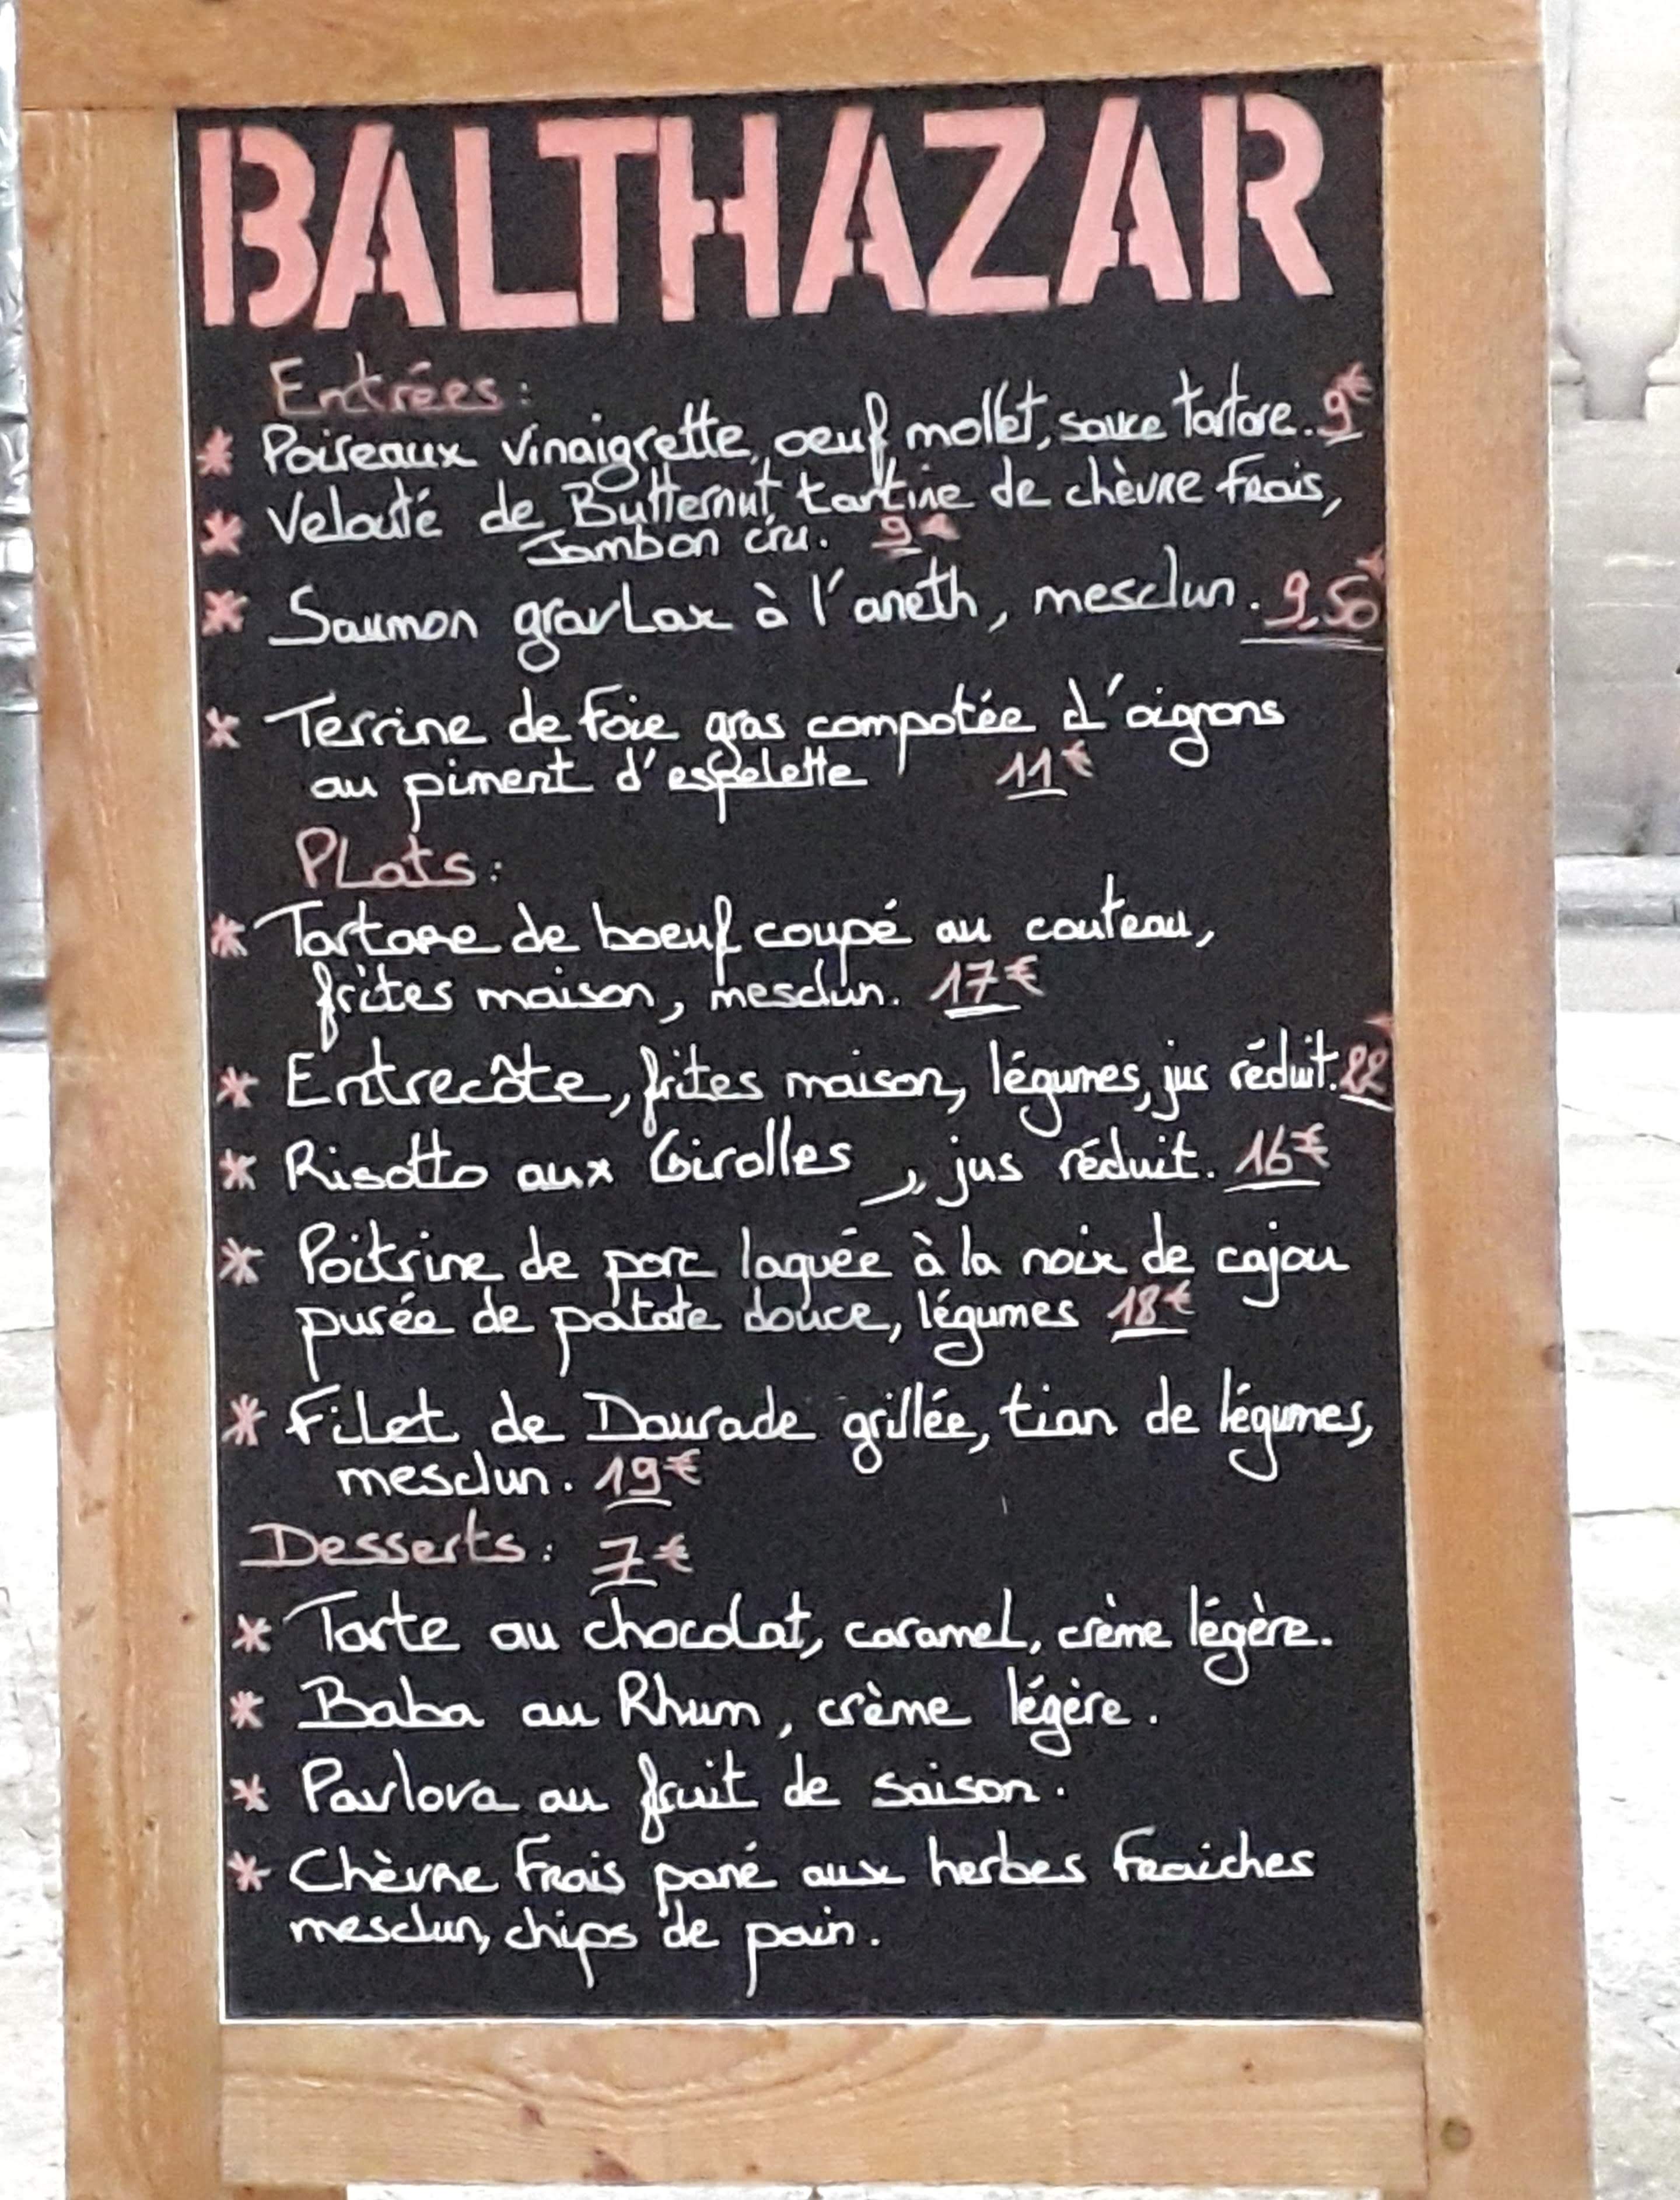 BALTHAZAR
Entrées:
* Poireaux vinaigrette, oeuf mollet, sauce tartare. 9€
* Velouté de Butternut, tartine de chèvre frais,
Jambon cru. 9€
* Saumon gravLax à l'aneth, mesclun. 9,50€
* Terrine de foie gras compotée d'oignons
au piment d'espelette 11€
PLats:
* Tartare de boeuf coupé au couteau,
frites maison, mesclun. 17€
* Entrecôte, frites maison, légumes, jus réduit. 22€
* Risotto aux Girolles, jus réduit. 16€
* Poitrine de porc laquée à la noix de cajou
purée de patate douce, légumes 18€
* Filet de Daurade grillée, tian de légumes,
mesclun. 19€
Desserts: 7€
* Tarte au chocolat, caramel, crème légère.
* Baba au Rhum, crème légère.
* Pavlova au fruit de saison.
* Chèvre Frais pané aux herbes fraiches
mesclun, chips de pain.